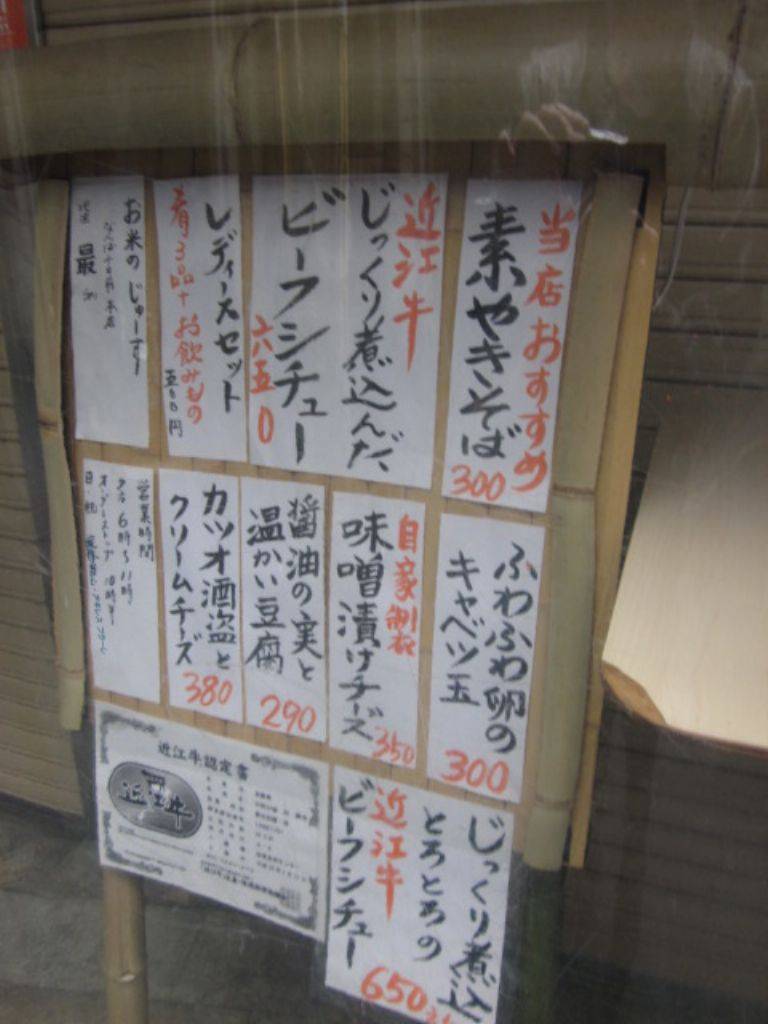 当店おすすめ
素やきそば
300
近江牛
じっくり煮込んだ
ビーフシチュー
六五0
レディースセット
肴3品+お飲みもの
五00円
お米のじゅーす
最
ふわふわ卵の
キャベツ玉
300
自家製
味噌漬けチーズ
350
醤油の実と
温かい豆腐
290
カツオ酒盗と
クリームチーズ
380
営業時間
6時〜11時
じっくり煮込
とろとろの
近江牛
ビーフシチュー
650
近江牛認定書
近江牛